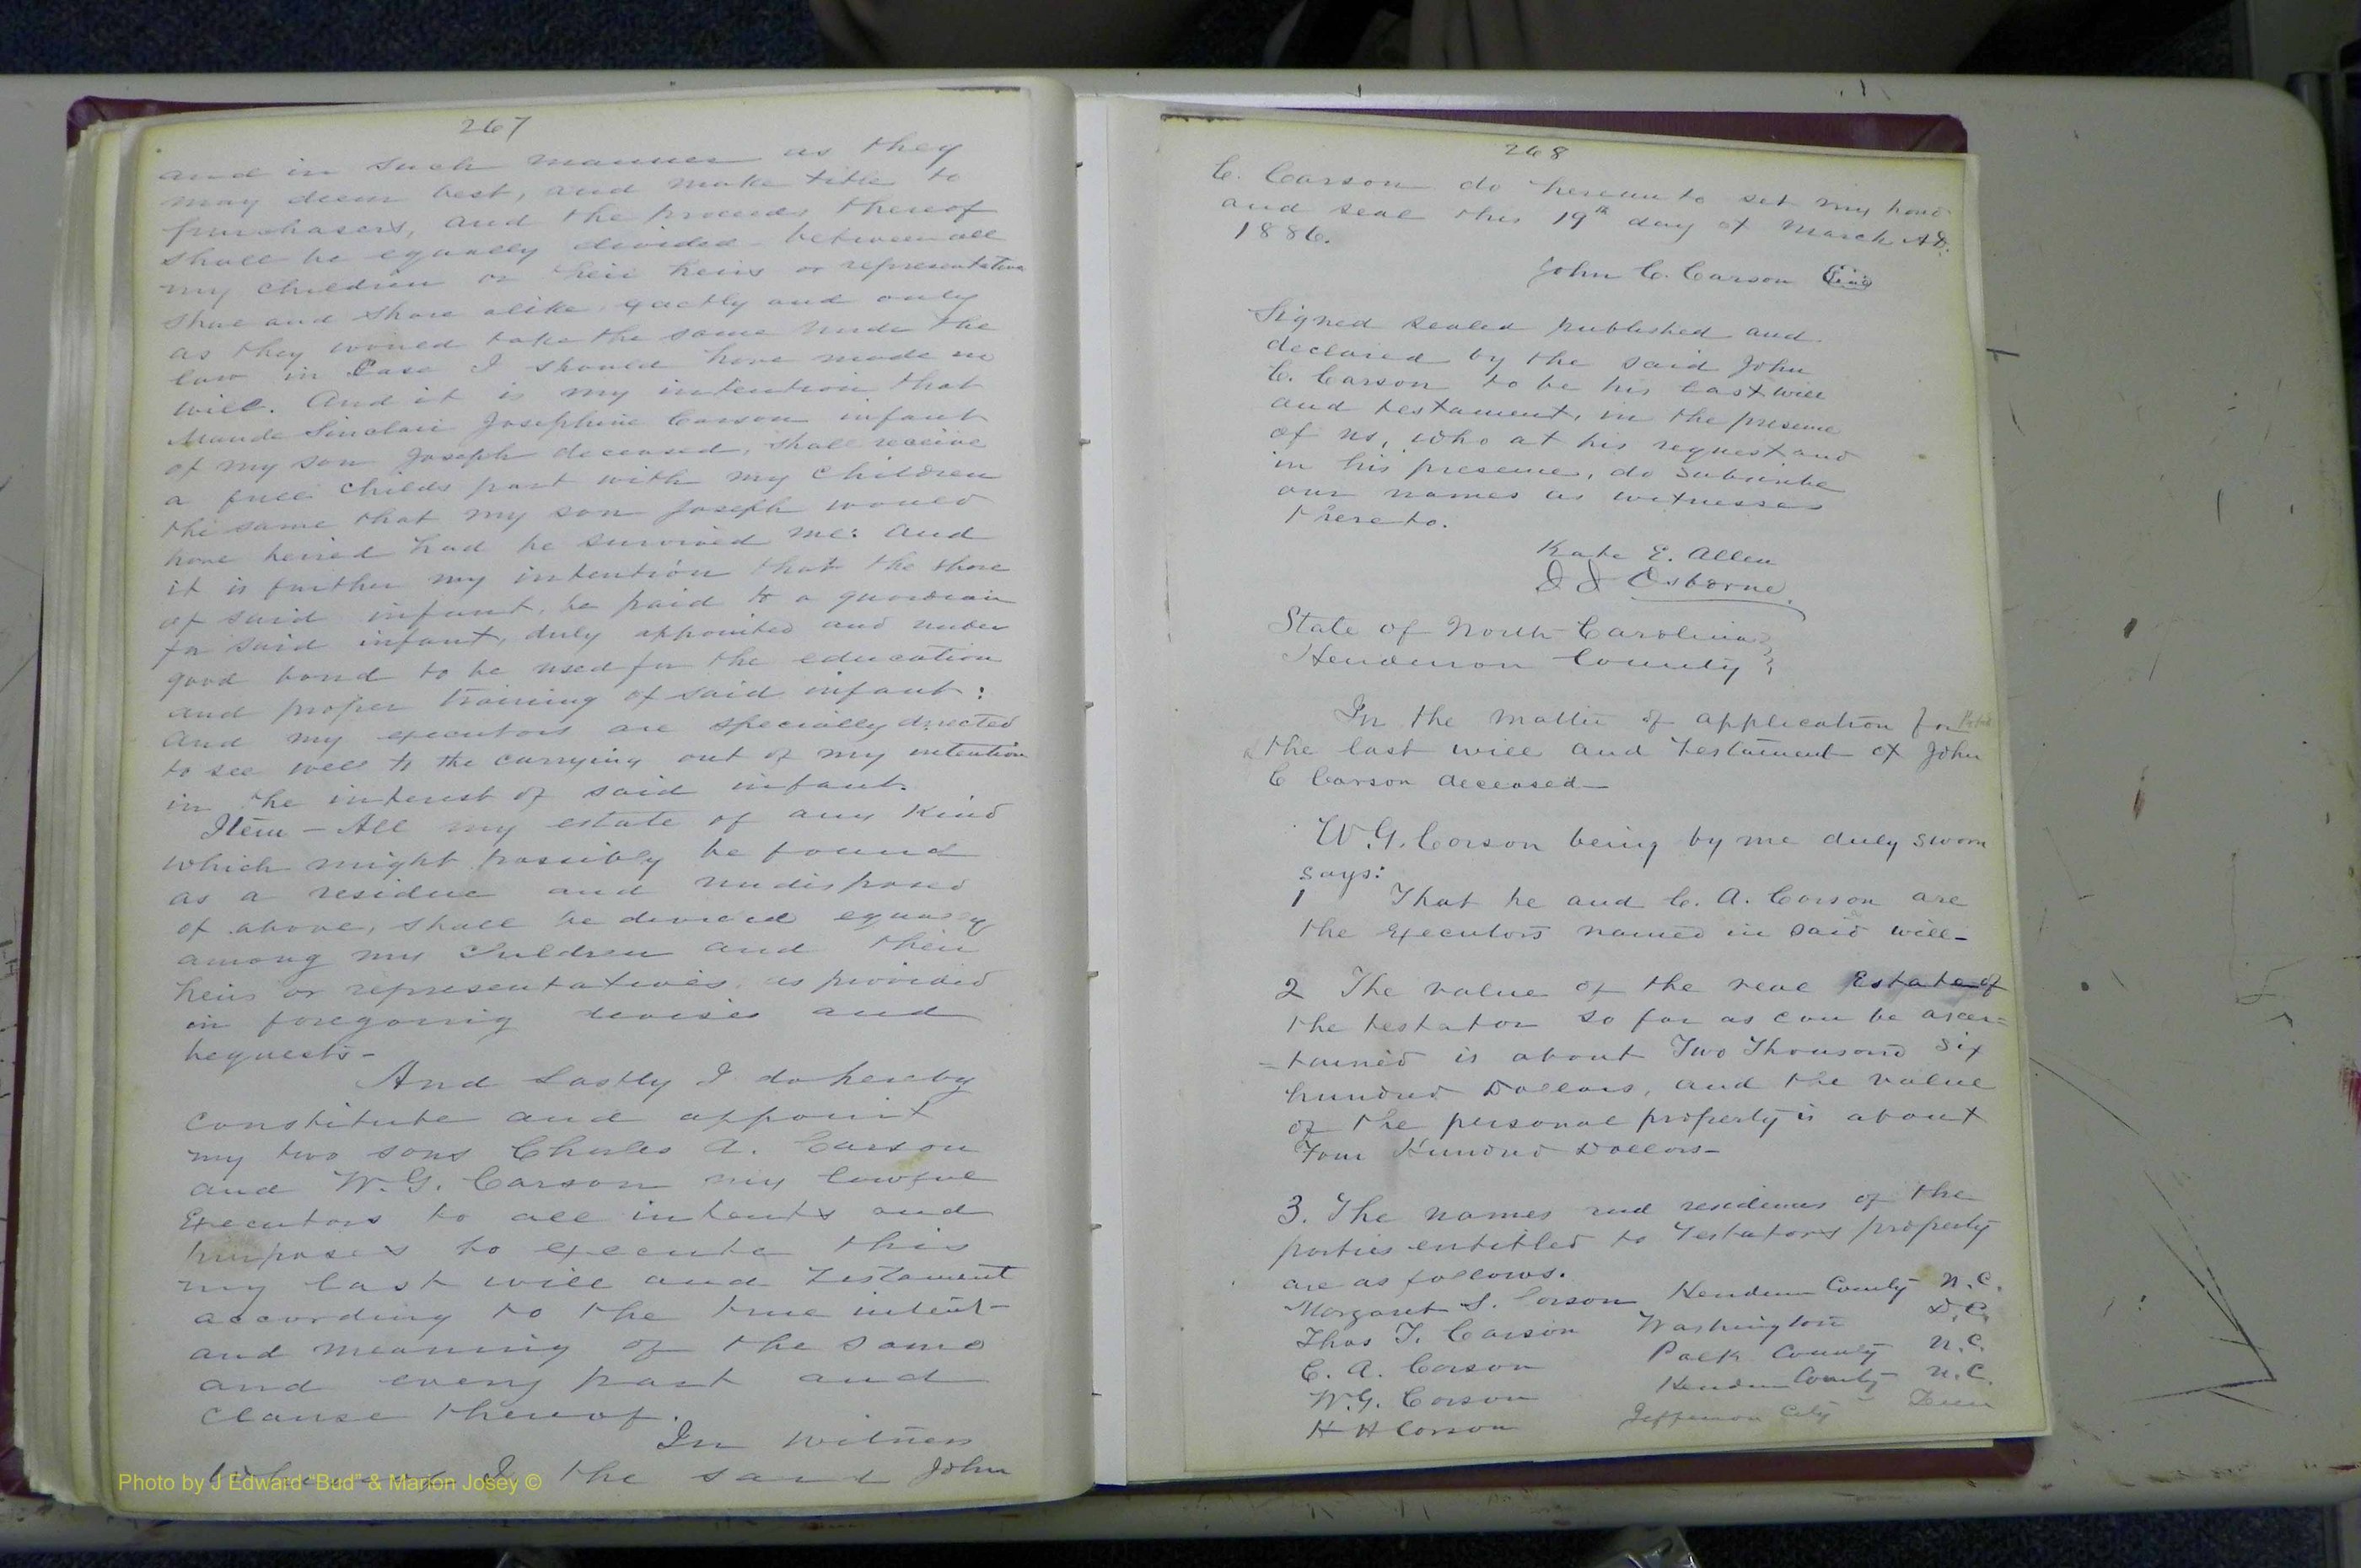 267
and in such manner as they
may deem best, and make title to
purchasers, and the proceeds thereof
shall be equally divided between all
my children or their heirs or representatives
share and share alike, exactly and only
as they would take the same under the
law in Case I should have made no
will. And it is my intention that
Maude Sinclair Josephine Carson infant
of my son Joseph deceased, shall receive
a full childs part with my children
the same that my son Joseph would
have heired had he survived me: and
it is further my intention that the share
of said infant, be paid to a guardian
for said infant, duly appointed and under
good bond to be used for the education
and proper training of said infant:
And my executors are specially directed
to see well to the carrying out of my intention
in the interest of said infant.
Item - All my estate of any kind
which might possibly be found
as a residue and undisposed
of above, shall be divided equally
among my children and their
heirs or representatives, as provided
in foregoing devises and
bequests -
And Lastly I do hereby
constitute and appoint
my two sons Charles A. Carson
and W. G. Carson my lawful
Executors to all intents and
purposes to execute this
my last will and Testament
according to the true intent
and meaning of the same
and every part and
clause thereof.
In witness
whereof I the said John
Photo by J Edward "Bud" & Marion Josey ©
268
C. Carson do hereunto set my hand
and seal this 19th day of March A.D.
1886.
John C. Carson Seal
Signed sealed published and
declared by the said John
C. Carson to be his last will
and testament, in the presence
of us, who at his request and
in his presence, do subscribe
our names as witnesses
thereto.
Kate E. Allen
J J Osborne
State of North Carolina
Henderson County
In the matter of application for
the last will and testament of John
C Carson deceased -
W. G. Carson being by me duly sworn
says:
1 That he and C. A. Carson are
the Executors named in said will -
2 The value of the real Estate of
the testator so far as can be ascer=
=tained is about Two Thousand Six
hundred Dollars, and the value
of the personal property is about
Four Hundred Dollars -
3. The names and residences of the
parties entitled to Testators property
are as follows.
Margaret S. Carson Henderson County N.C.
Thos T. Carson Washington D.C.
C. A. Carson Polk County N.C.
W. G. Carson Henderson County N.C.
H H Carson Jefferson City Tenn